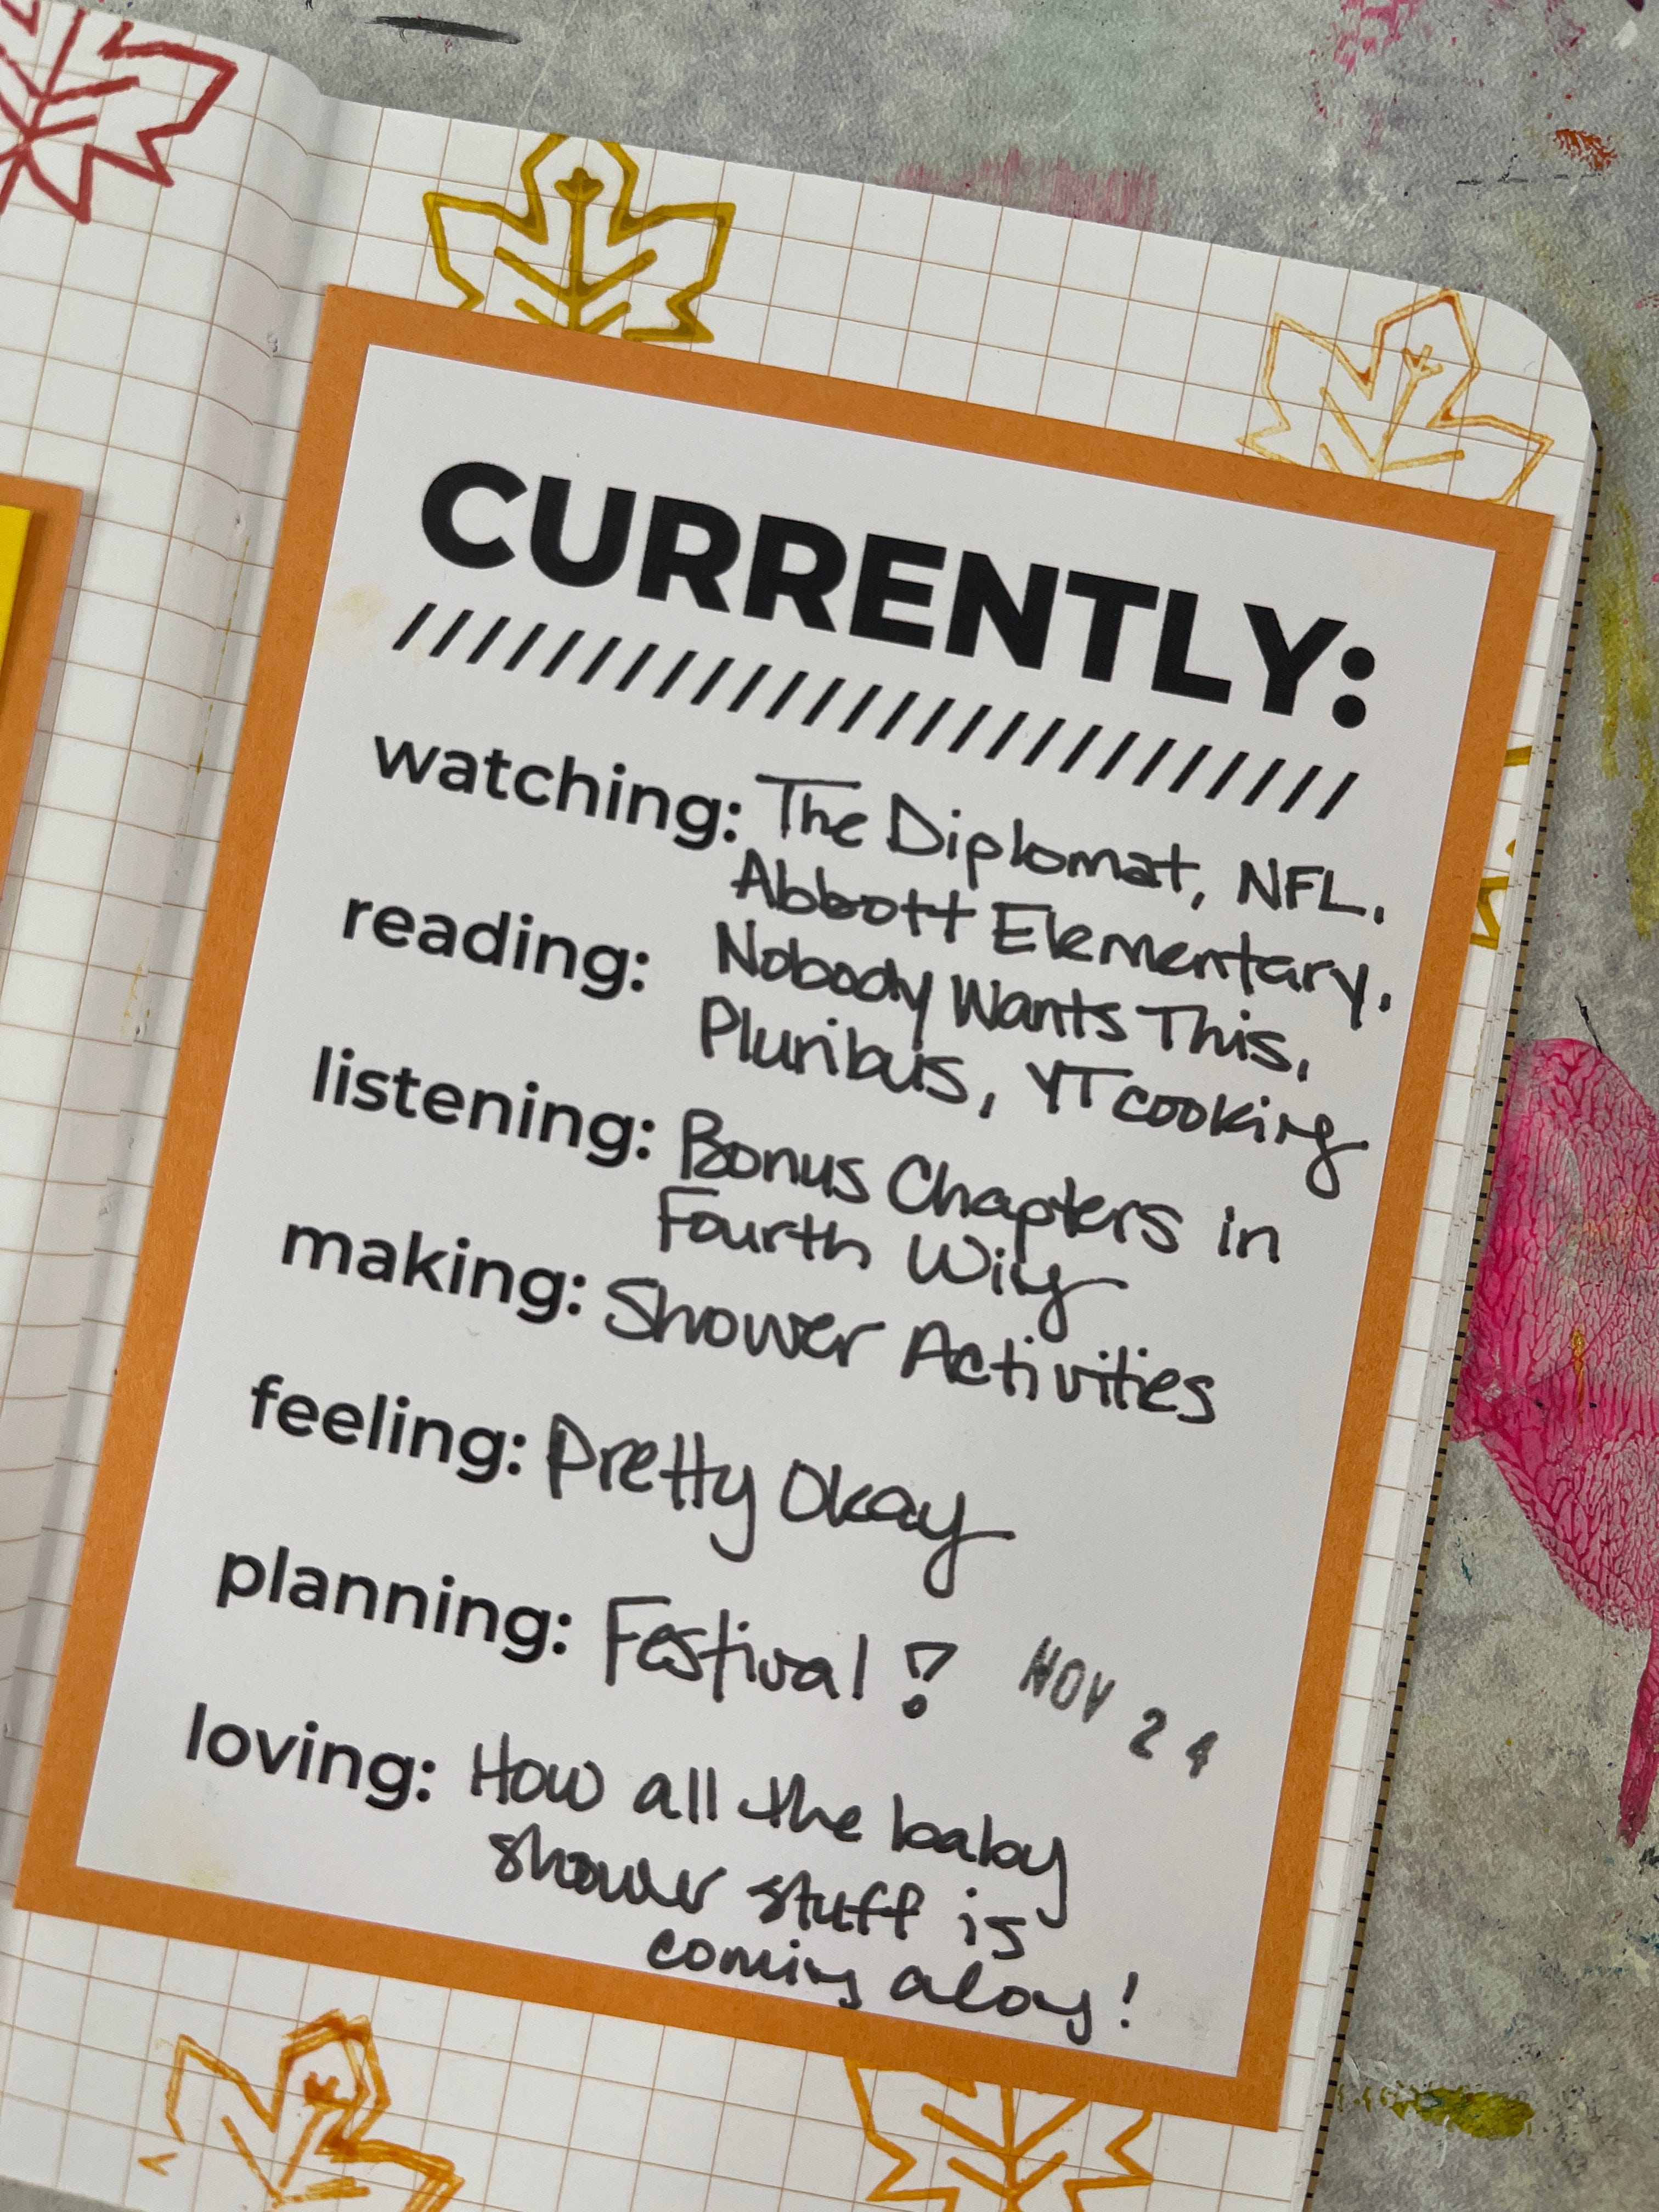 CURRENTLY:
watching: The Diplomat, NFL.
Abbott Elementary.
reading: Nobody Wants This,
Pluribus, YT cooking
listening: Bonus Chapters in
Fourth Wing
making: Shower Activities
feeling: Pretty Okay
planning: Festival?
NOV 24
loving: How all the baby
shower stuff is
coming along!